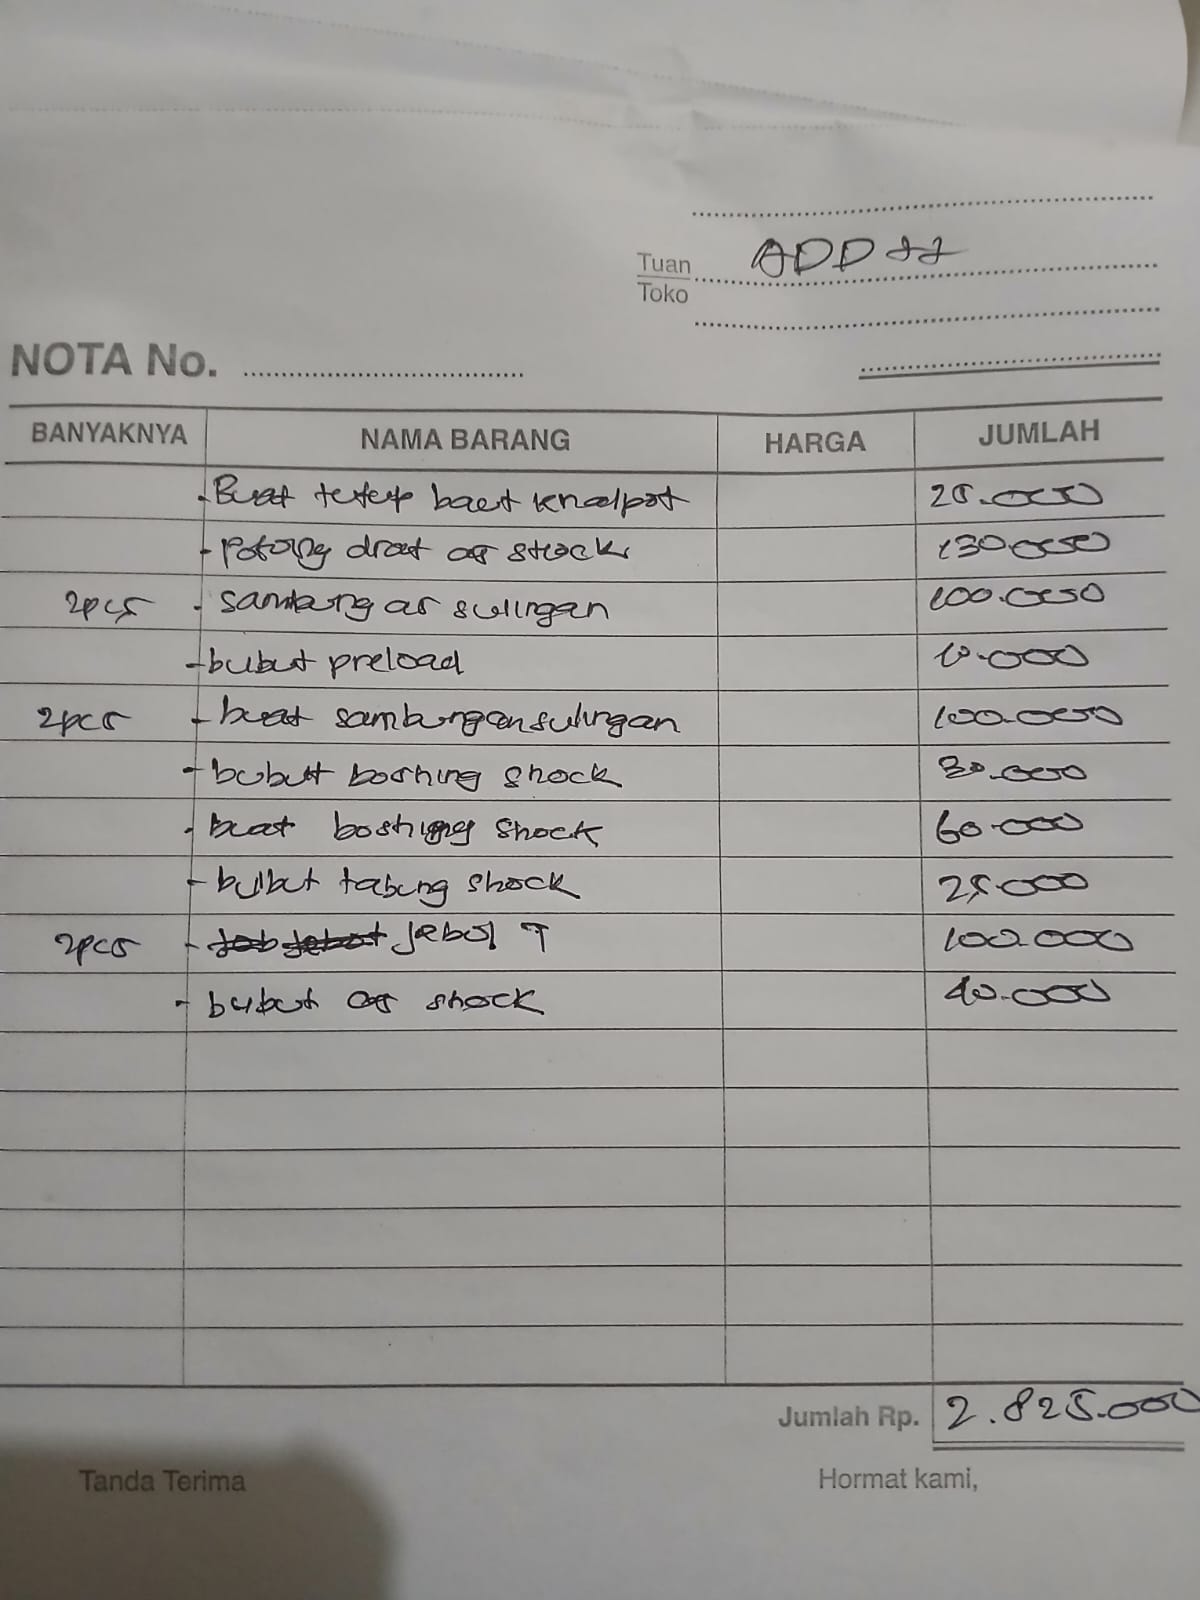 Tuan ADD
Toko
NOTA No.
BANYAKNYA NAMA BARANG HARGA JUMLAH
- Buat tutup baut knalpot 25.000
- Potong drat as shock 130.000
2pcs - sambung as sulingan 100.000
- bubut preload 10.000
2pcs - buat sambungan sulingan 100.000
- bubut boshing shock 30.000
- buat boshing shock 60.000
- bubut tabung shock 25.000
2pcs - jebol T 100.000
- bubut as shock 40.000
Jumlah Rp. 2.825.000
Tanda Terima Hormat kami,